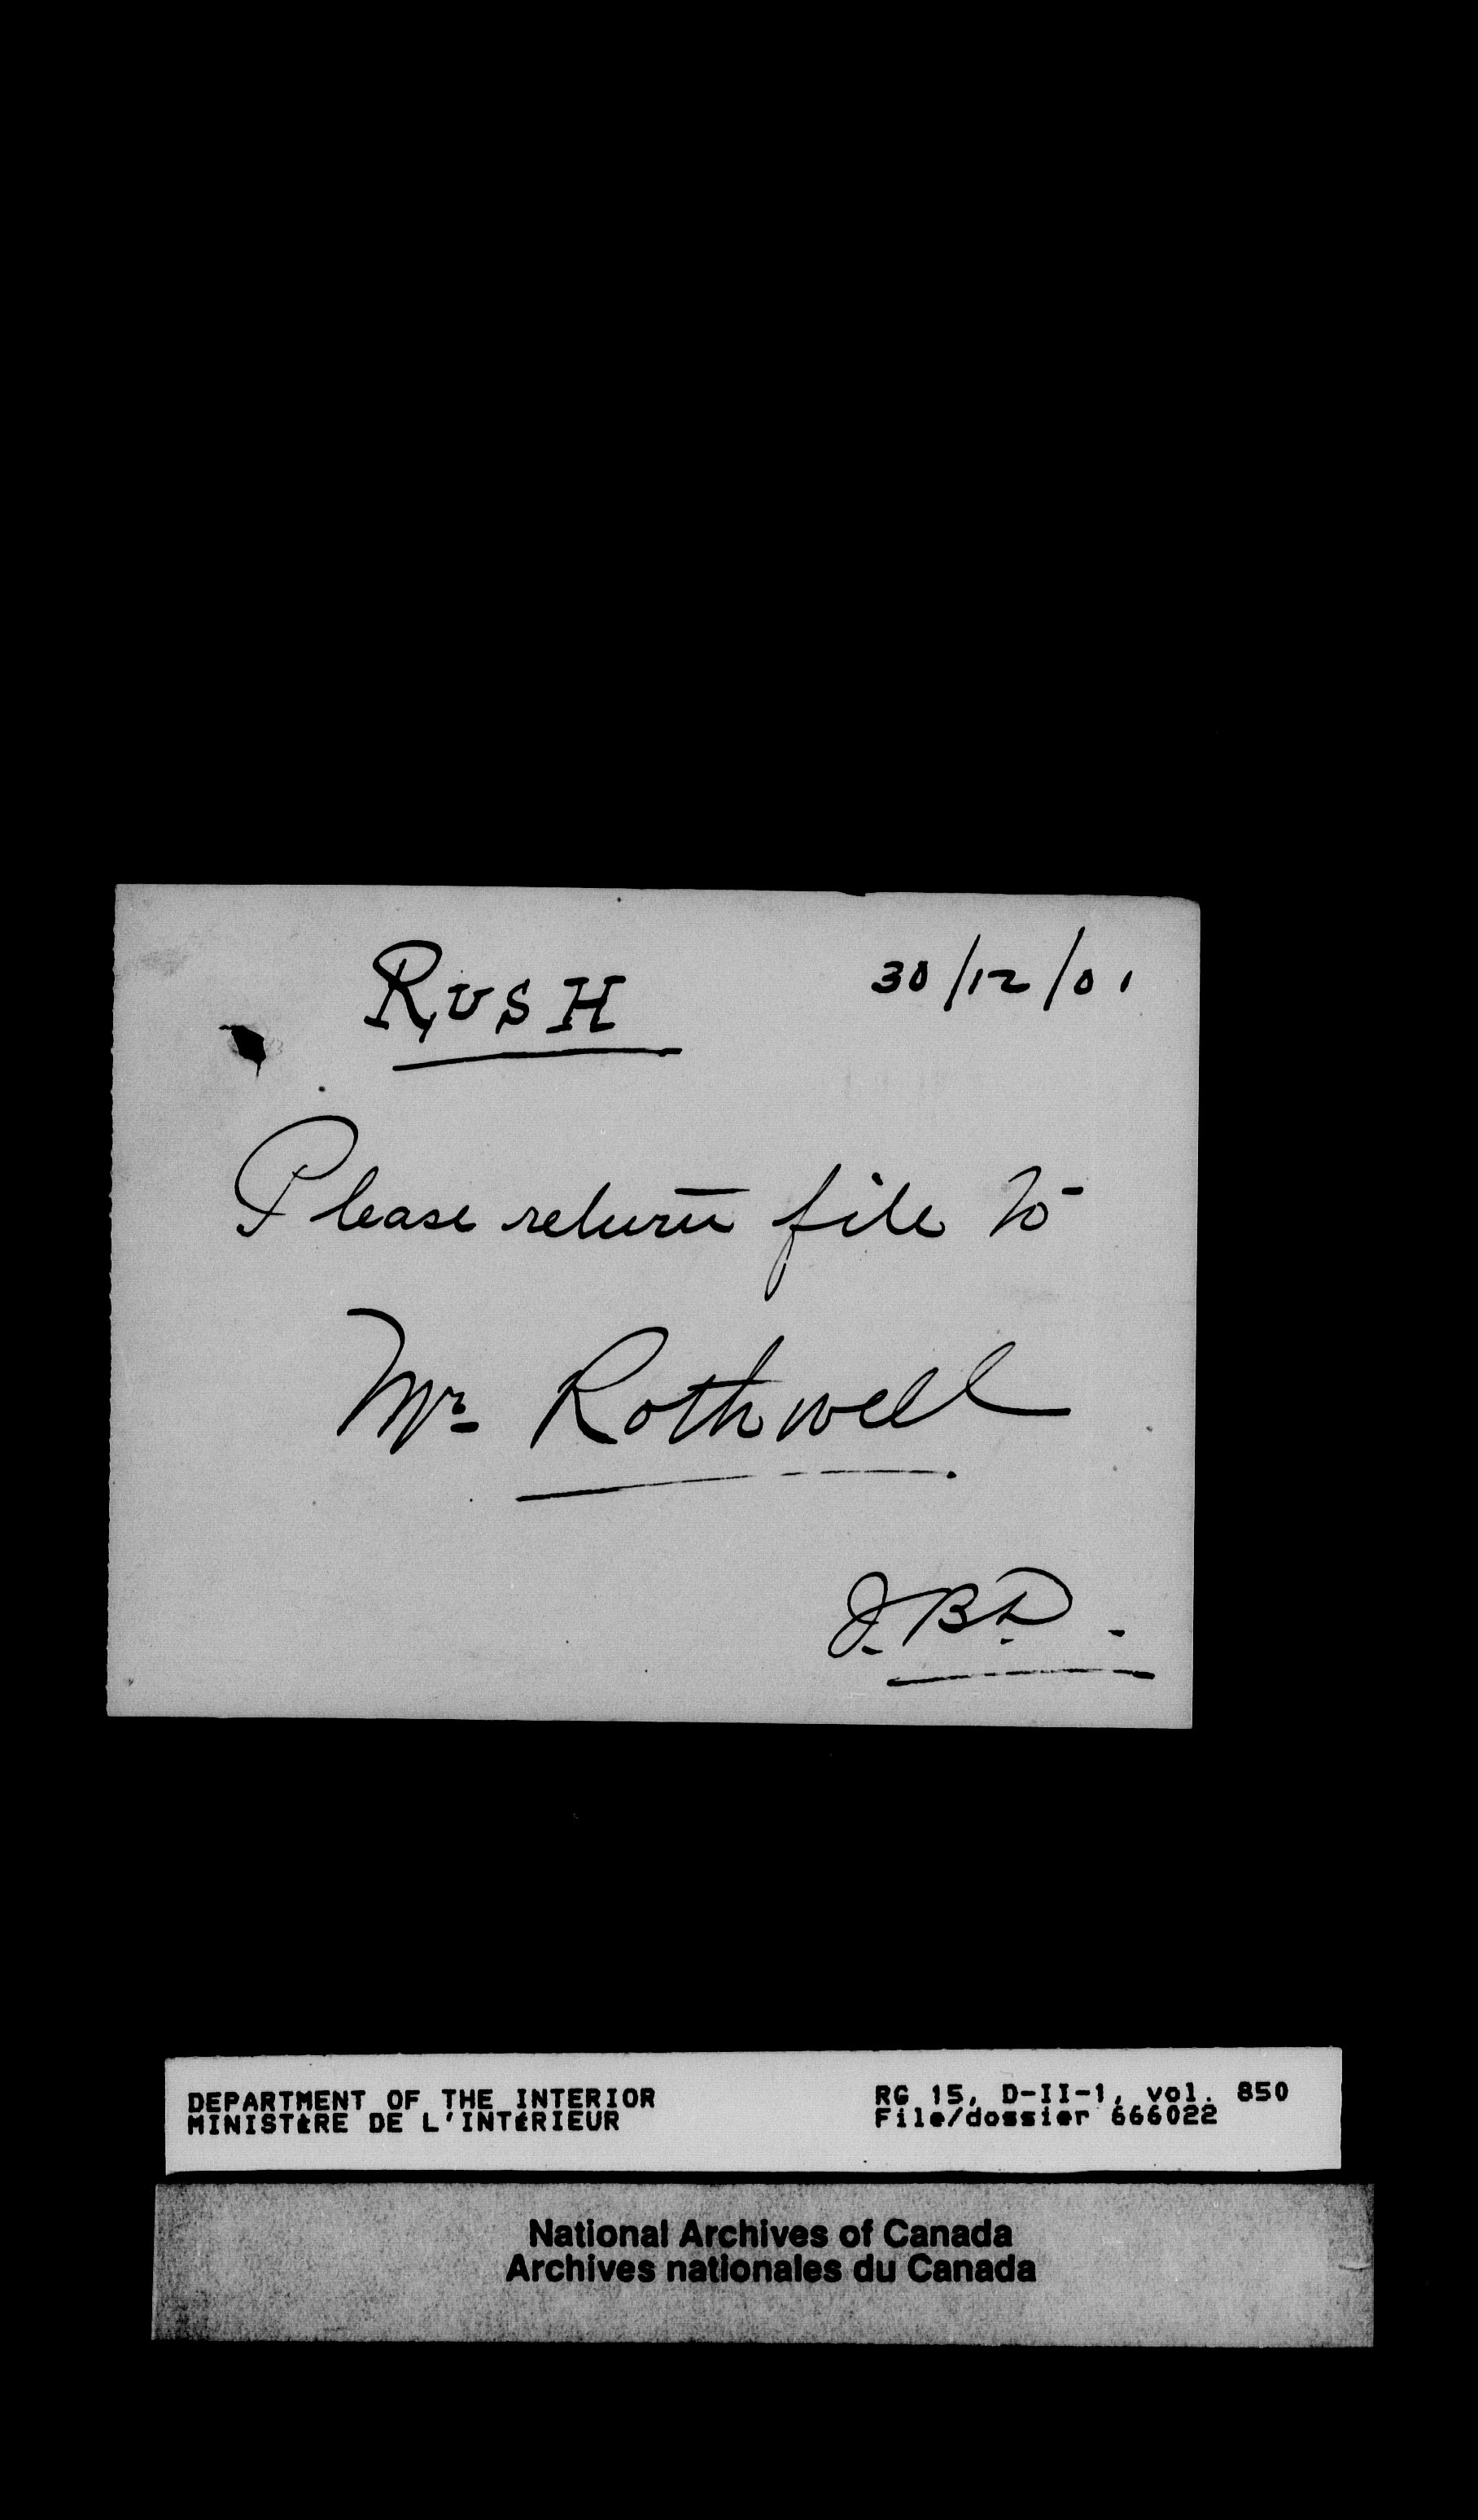 RUSH 30/12/01
Please return file to
Mr Rothwell
J.B.D.
DEPARTMENT OF THE INTERIOR
MINISTÈRE DE L'INTÉRIEUR
RG 15, D-II-1, vol. 850
File/dossier 666022
National Archives of Canada
Archives nationales du Canada